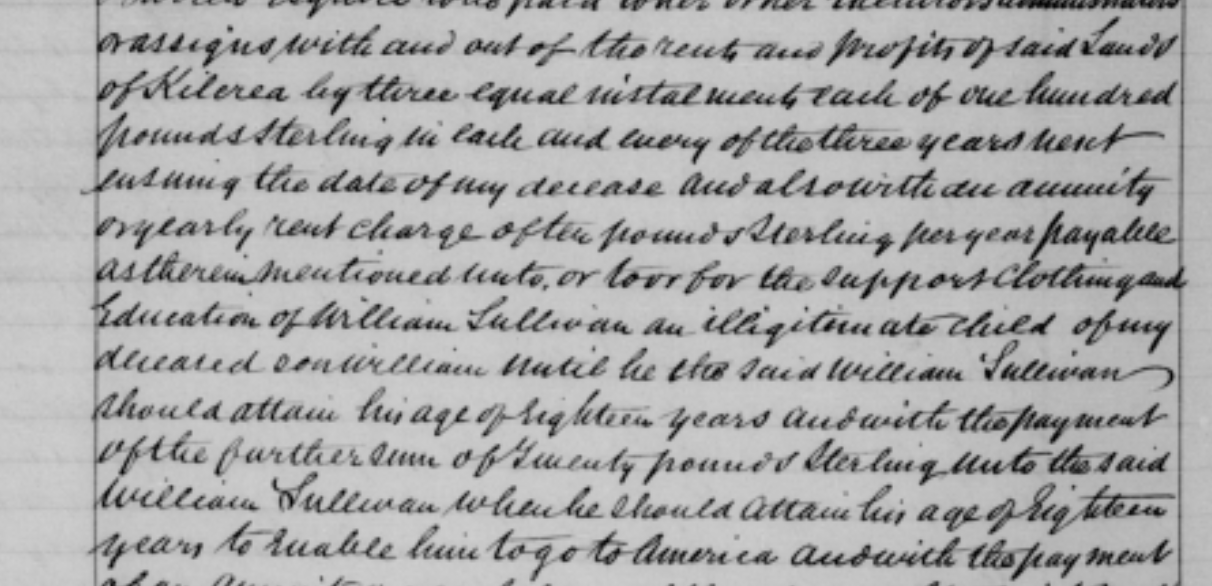 or assigns with and out of the rents and profits of said Lands
of Kilcrea by three equal instalments each of one hundred
pounds Sterling in each and every of the three years next
ensuing the date of my decease and also with an annuity
or yearly rent charge of ten pounds Sterling per year payable
as therein mentioned unto, or to or for the support Clothing and
Education of William Sullivan an illigitimate child of my
deceased son William until he the said William Sullivan
should attain his age of Eighteen years and with the payment
of the further sum of Twenty pounds Sterling unto the said
William Sullivan when he should attain his age of Eighteen
years to enable him to go to America and with the payment